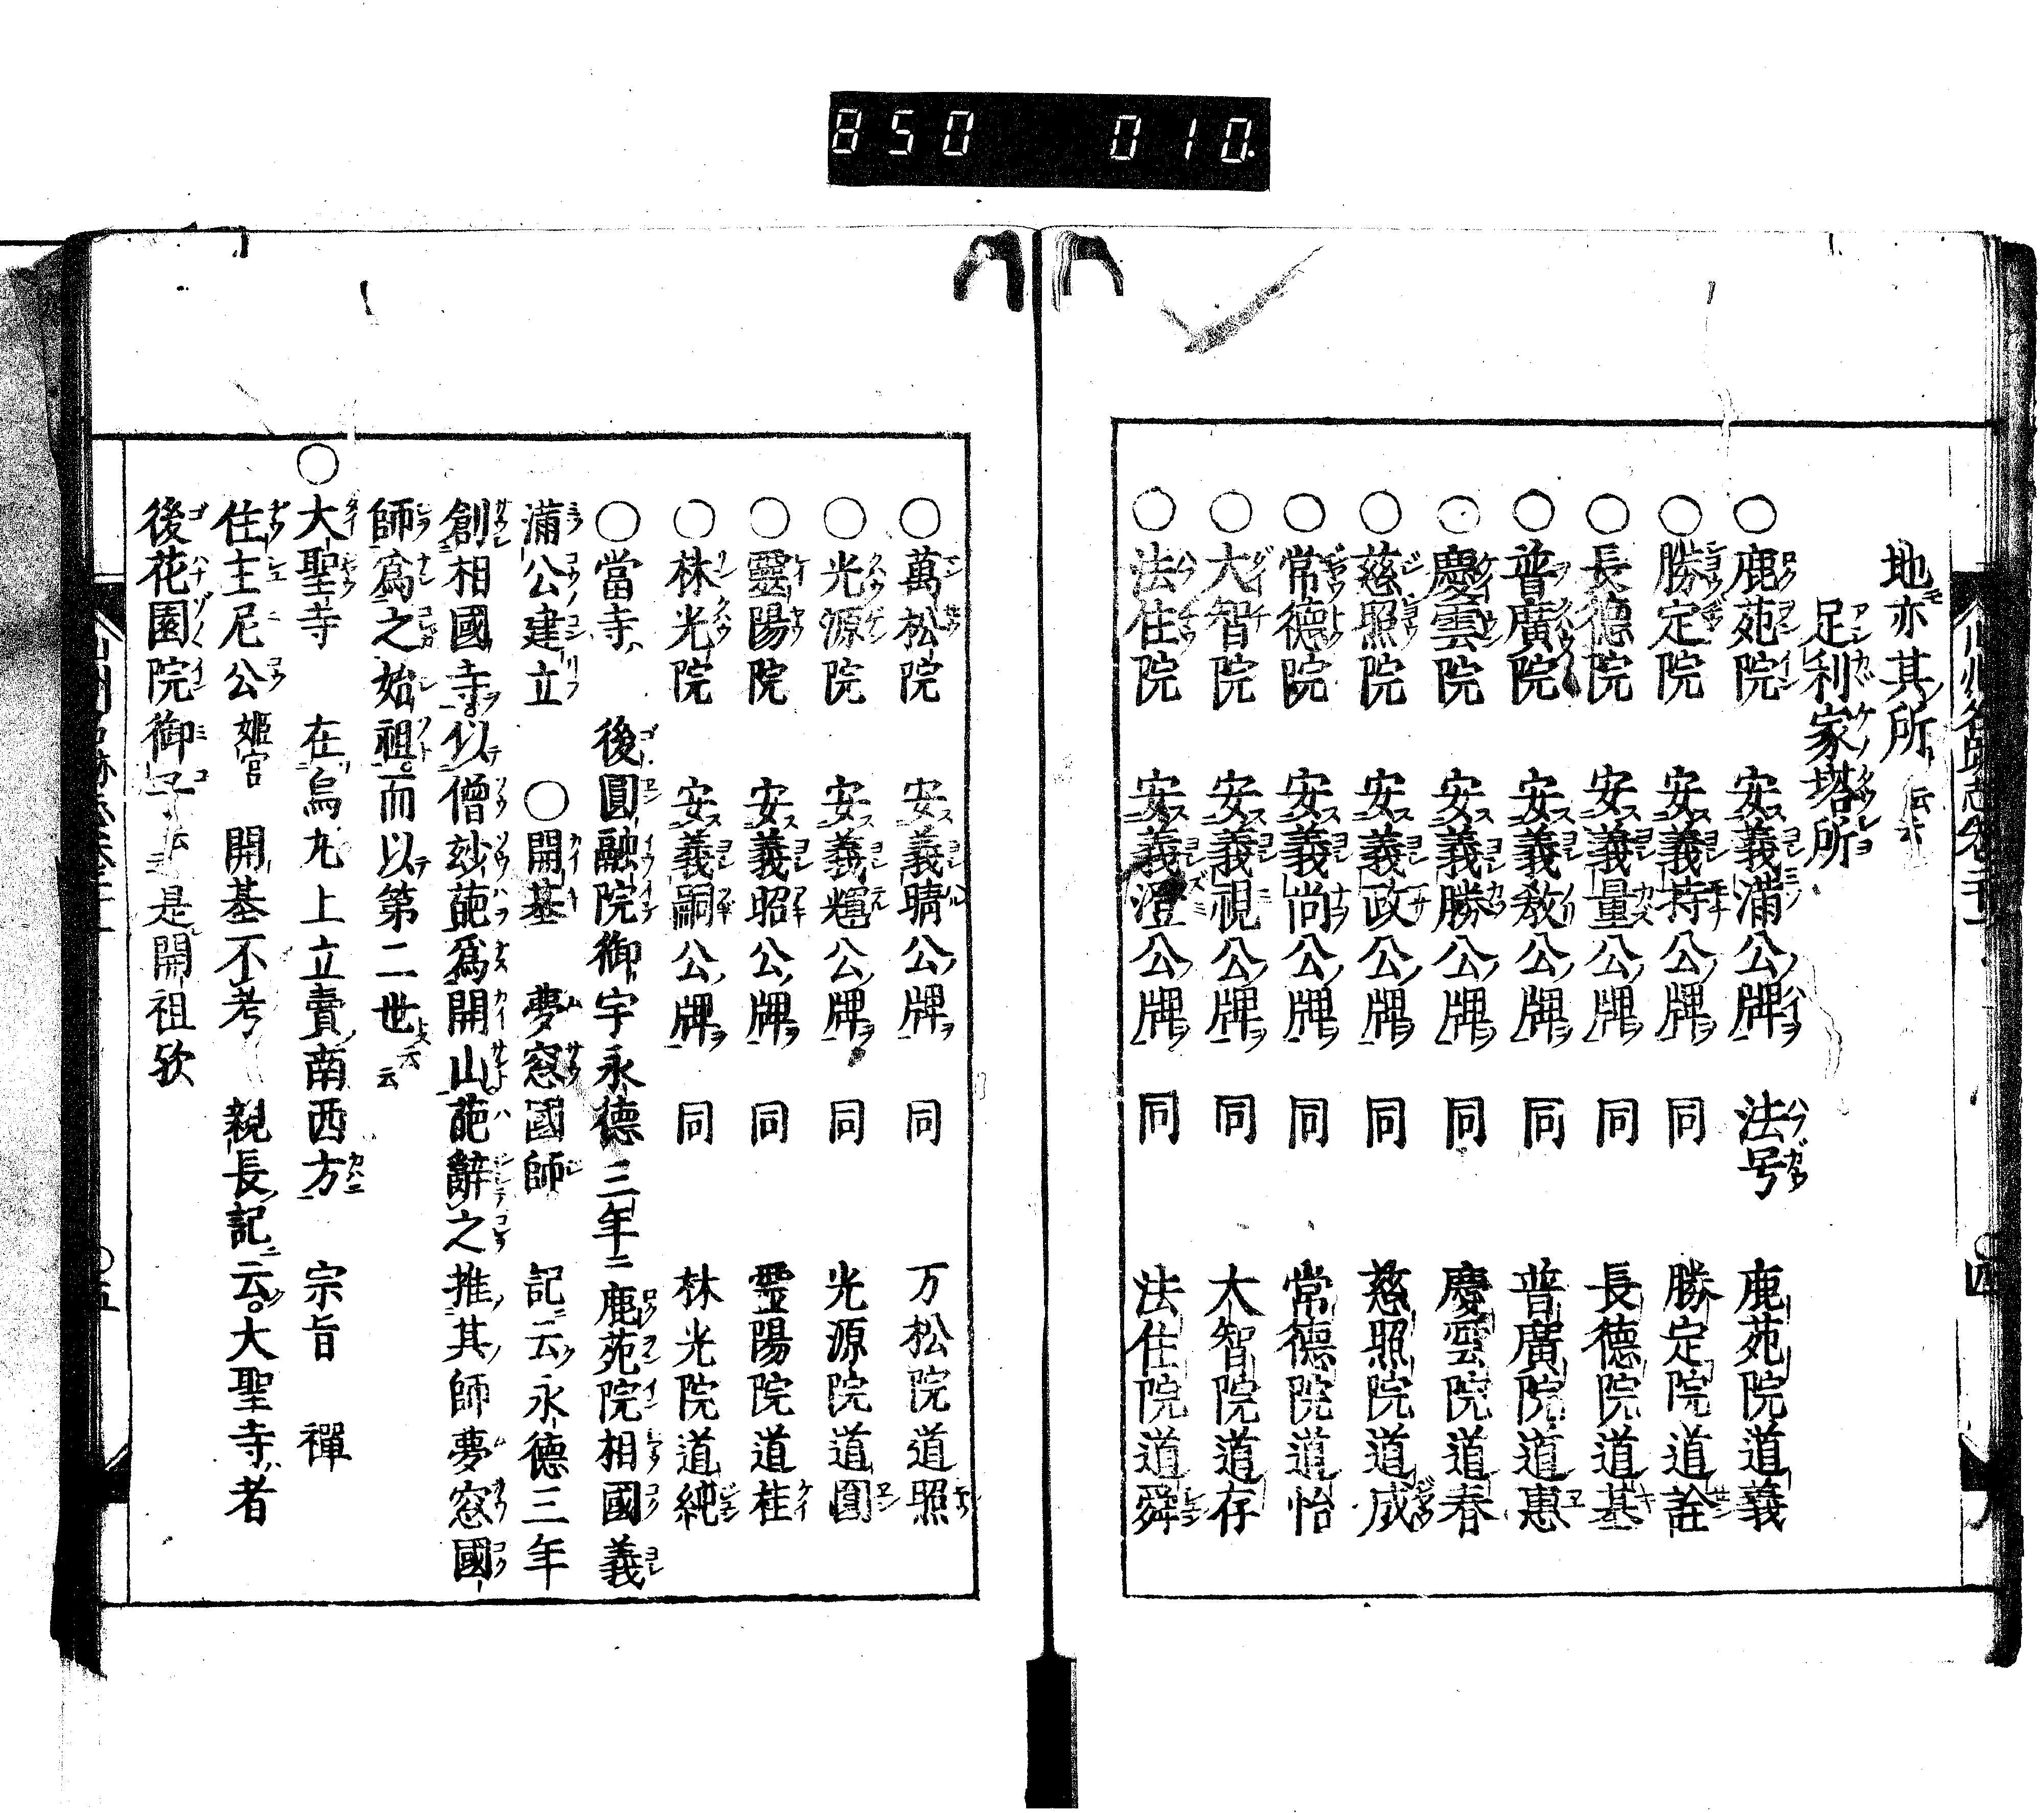 850 010
地亦其所云云
足利家塔所
○鹿苑院 安義満公牌 法号 鹿苑院道義
○勝定院 安義持公牌 同 勝定院道詮
○長徳院 安義量公牌 同 長徳院道基
○普廣院 安義教公牌 同 普廣院道惠
○慶雲院 安義勝公牌 同 慶雲院道春
○慈照院 安義政公牌 同 慈照院道成
○常徳院 安義尚公牌 同 常徳院道怡
○大智院 安義視公牌 同 大智院道存
○法住院 安義澄公牌 同 法住院道舜
○萬松院 安義晴公牌 同 万松院道照
○光源院 安義輝公牌 同 光源院道圓
○靈陽院 安義昭公牌 同 靈陽院道桂
○林光院 安義嗣公牌 同 林光院道純
○當寺 後圓融院御宇永徳三年鹿苑院相國義
満公建立 ○開基 夢窓國師 記云永徳三年
創相國寺以僧玅葩爲開山葩辭之推其師夢窓國
師爲之始祖而以第二世云云
○大聖寺 在烏丸上立賣南西方 宗旨 禪
住主尼公 姫宮 開基不考 親長記云大聖寺者
後花園院御 是開祖欤